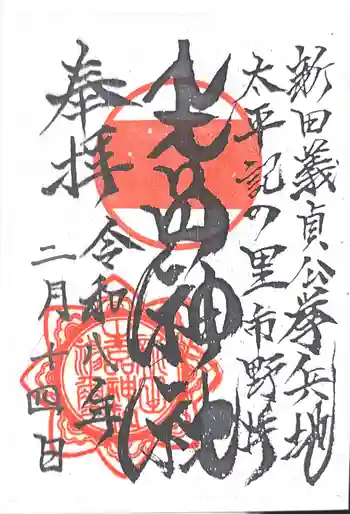 新田義貞公挙兵地
太平記の里市野井
生品神社
奉拝
令和八年
二月十四日